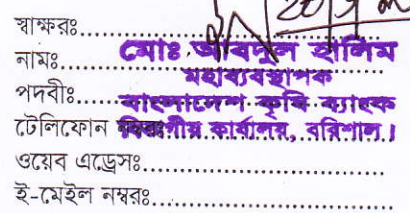 স্বাক্ষরঃ
নামঃ মোঃ আবদুল হালিম
মহাব্যবস্থাপক
পদবীঃ বাংলাদেশ কৃষি ব্যাংক
টেলিফোন নম্বরঃ বিভাগীয় কার্যালয়, বরিশাল।
ওয়েব এড্রেসঃ
ই-মেইল নম্বরঃ